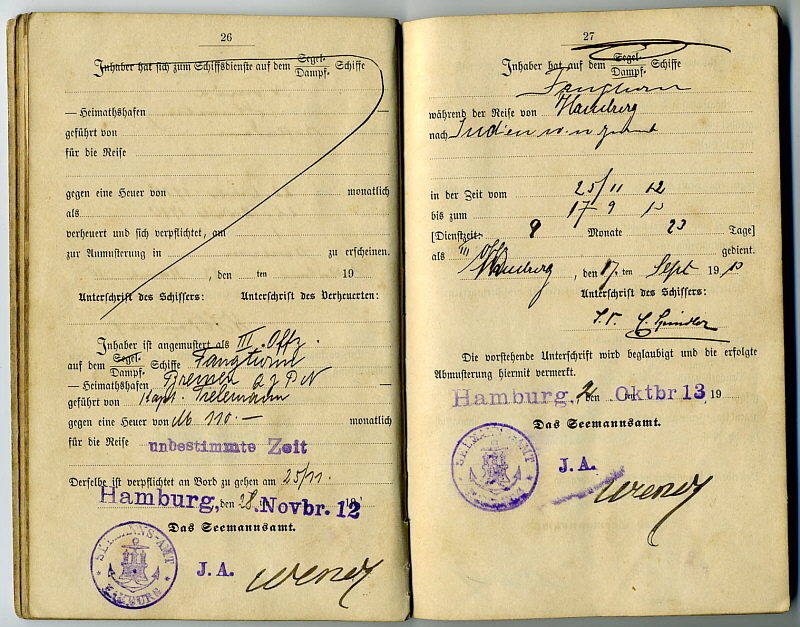 26
Inhaber hat sich zum Schiffsdienste auf dem Segel- Dampf- Schiffe
— Heimathshafen —
geführt von
für die Reise
gegen eine Heuer von monatlich
als
verheuert und sich verpflichtet, am
zur Anmusterung in zu erscheinen.
, den ten 19
Unterschrift des Schiffers: Unterschrift des Verheuerten:
Inhaber ist angemustert als III. Offz.
auf dem Segel- Dampf- Schiffe Fangturm
— Heimathshafen Bremen
geführt von Kapt.
gegen eine Heuer von Mk 110.— monatlich
für die Reise unbestimmte Zeit
Derselbe ist verpflichtet an Bord zu gehen am 25/11.
Hamburg, den 28. Novbr. 12
Das Seemannsamt.
SEEMANNS-AMT HAMBURG
J. A.
27
Inhaber hat auf dem Segel- Dampf- Schiffe
Fangturm
während der Reise von Hamburg
nach Indien u.
in der Zeit vom 25/11 12
bis zum 17 9 13
[Dienstzeit: 9 Monate 23 Tage]
als III Offz gedient.
Hamburg, den 17. ten Sept 1913
Unterschrift des Schiffers:
Die vorstehende Unterschrift wird beglaubigt und die erfolgte
Abmusterung hiermit vermerkt.
Hamburg, den Oktbr 13, 19
Das Seemannsamt.
SEEMANNS-AMT
J. A.